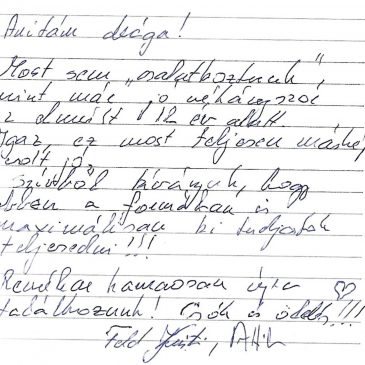 Anitám drága!
Most sem „csalatkoztunk",
mint már jó néhányszor
z elmúlt 12 év alatt.
Igaz, ez most teljesen máské
volt jó.
szívből kívánjuk, hogy
ebben a formában is
maximálisan ki tudjatok
teljesedni!!!
Remélem hamarosan újra ♡
találkozunk! Csók és ölelés!!!
Kriszti, Attila